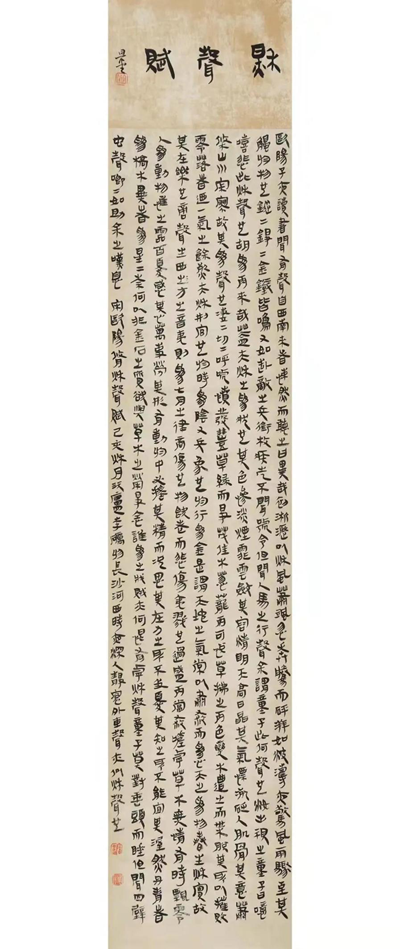 秋聲賦
歐陽子方夜讀書聞有聲自西南來者悚然而聽之曰異哉初淅瀝以秋風蕭颯忽奔騰而砰湃如波濤夜驚風雨驟至其
觸物也鏦二錚二金鐵皆鳴又如赴敵之兵銜枚疾走不聞號令但聞人馬之行聲余謂童子此何聲也汝出視之童子曰噫
嘻悲此秋聲也胡為乎來哉蓋夫秋之為狀也其色慘淡煙霏雲斂其容清明天高日晶其氣慄冽砭人肌骨其意蕭
條山川寂寥故其為聲也淒二切二呼號憤發豐草綠而爭茂佳木蔥蘢而可悅草拂之而色變木遭之而葉脫其所以摧敗
零落者乃一氣之餘烈夫秋刑官也於時為陰又兵象也於行為金是謂天地之氣常以肅殺而為心天之於物春生秋實故
其在樂也商聲主西方之音夷則為七月之律商傷也物既老而悲傷夷戮也物過盛而當殺嗟乎草木無情有時飄零
人為動物惟物之靈百憂感其心萬事勞其形有動於中必搖其精而況思其力之所不及憂其知之所不能宜其渥然丹者
為槁木黟然黑者為星二奈何以非金石之質欲與草木而爭榮念誰為之戕賊亦何恨乎秋聲童子莫對垂頭而睡但聞四壁
虫聲唧二如助余之嘆息 右歐陽修秋聲賦己亥秋月於長沙河西時夜深人靜窗外虫聲亦似秋聲也